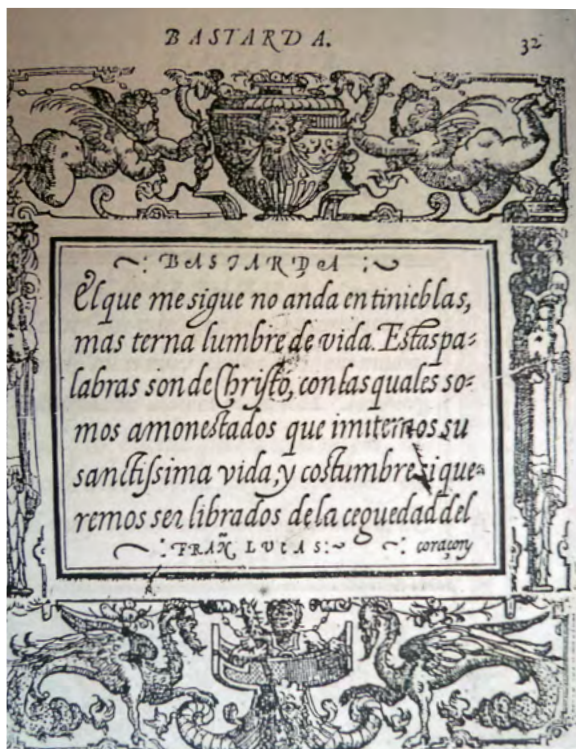 BASTARDA.
32
BASTARDA
El que me sigue no anda en tinieblas,
mas terna lumbre de vida. Estas pa-
labras son de Christo, con las quales so-
mos amonestados que imitemos su
sanctissima vida, y costumbre si que-
remos ser librados de la ceguedad del
FRAÑ. LUCAS:
coraçon y